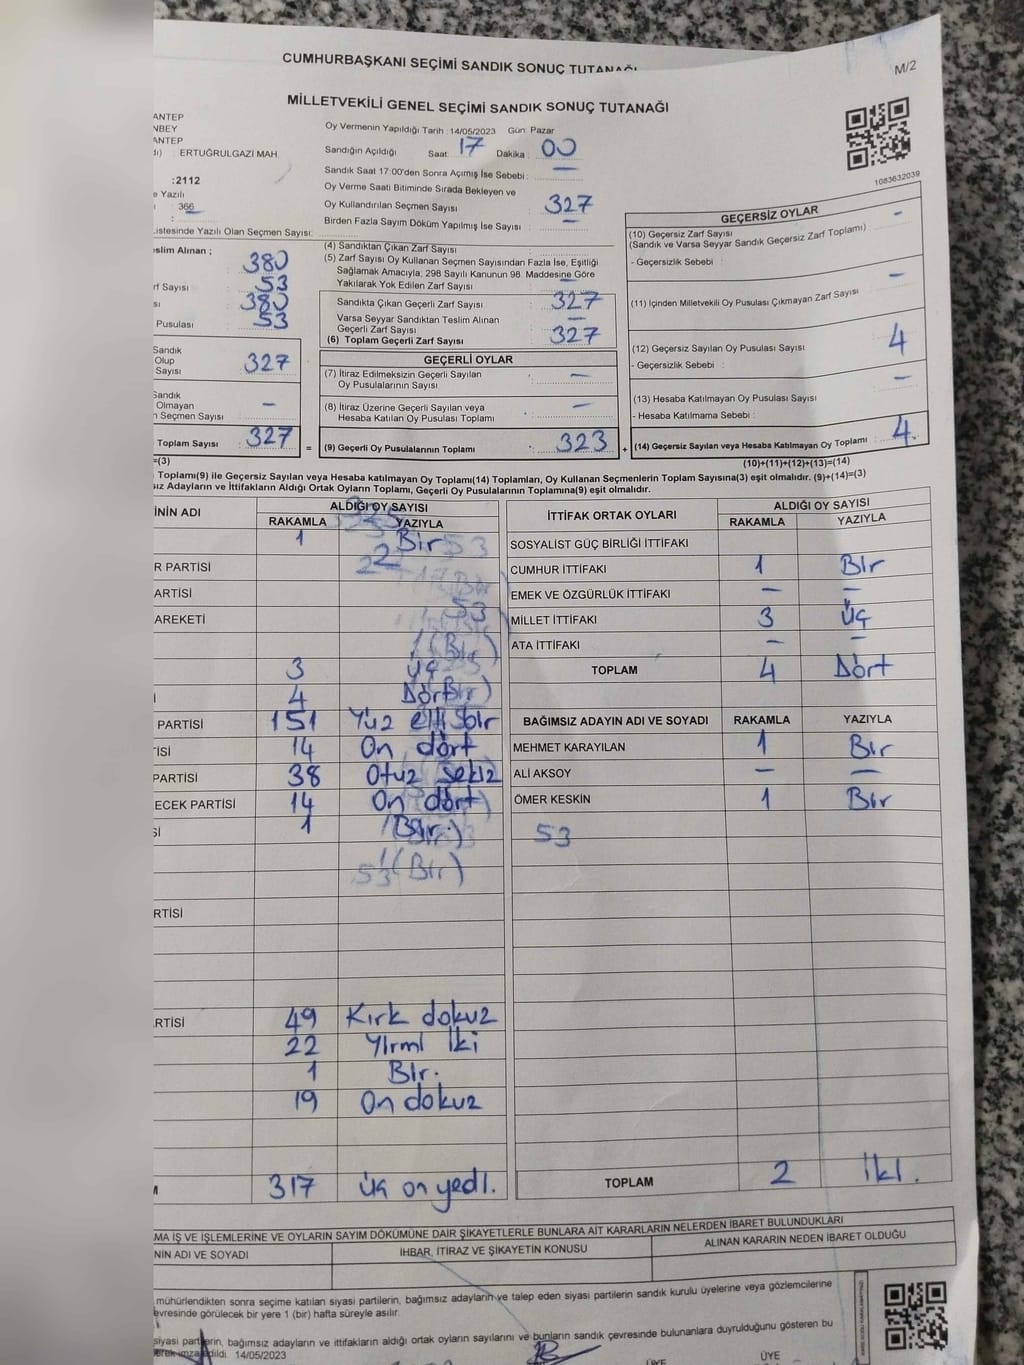 CUMHURBAŞKANI SEÇİMİ SANDIK SONUÇ
M/2
MİLLETVEKİLİ GENEL SEÇİMİ SANDIK SONUÇ TUTANAĞI
1083632039
ANTEP
NBEY
ANTEP
: ERTUĞRULGAZİ MAH.
:2112
e Yazılı
: 366
Listesinde Yazılı Olan Seçmen Sayısı:
eslim Alınan : 380
rf Sayısı 53
sı 380
Pusulası 53
Sandık
Olup
Sayısı : 327
Sandık
Olmayan
n Seçmen Sayısı : -
Toplam Sayısı : 327
=(3)
Oy Vermenin Yapıldığı Tarih :14/05/2023 Gün: Pazar
Sandığın Açıldığı Saat: 17 Dakika : 00
Sandık Saat 17:00'den Sonra Açımış İse Sebebi : -
Oy Verme Saati Bitiminde Sırada Bekleyen ve
Oy Kullandırılan Seçmen Sayısı : 327
Birden Fazla Sayım Döküm Yapılmış İse Sayısı : -
(4) Sandıktan Çıkan Zarf Sayısı :
(5) Zarf Sayısı Oy Kullanan Seçmen Sayısından Fazla İse, Eşitliği
Sağlamak Amacıyla; 298 Sayılı Kanunun 98. Maddesine Göre
Yakılarak Yok Edilen Zarf Sayısı : -
Sandıkta Çıkan Geçerli Zarf Sayısı : 327
Varsa Seyyar Sandıktan Teslim Alınan
Geçerli Zarf Sayısı : -
(6) Toplam Geçerli Zarf Sayısı : 327
GEÇERLİ OYLAR
(7) İtiraz Edilmeksizin Geçerli Sayılan
Oy Pusulalarının Sayısı : -
(8) İtiraz Üzerine Geçerli Sayılan veya
Hesaba Katılan Oy Pusulası Toplamı : -
= (9) Geçerli Oy Pusulalarının Toplamı : 323 +
GEÇERSİZ OYLAR
(10) Geçersiz Zarf Sayısı -
(Sandık ve Varsa Seyyar Sandık Geçersiz Zarf Toplamı) :
- Geçersizlik Sebebi :
(11) İçinden Milletvekili Oy Pusulası Çıkmayan Zarf Sayısı -
(12) Geçersiz Sayılan Oy Pusulası Sayısı 4
- Geçersizlik Sebebi :
(13) Hesaba Katılmayan Oy Pusulası Sayısı -
- Hesaba Katılmama Sebebi :
(14) Geçersiz Sayılan veya Hesaba Katılmayan Oy Toplamı : 4.
(10)+(11)+(12)+(13)=(14)
Toplamı(9) ile Geçersiz Sayılan veya Hesaba Katılmayan Oy Toplamı(14) Toplamları, Oy Kullanan Seçmenlerin Toplam Sayısına(3) eşit olmalıdır. (9)+(14)=(3)
ız Adayların ve İttifakların Aldığı Ortak Oyların Toplamı, Geçerli Oy Pusulalarının Toplamına(9) eşit olmalıdır.
İNİN ADI ALDIĞI OY SAYISI
RAKAMLA YAZIYLA
1 Bir 53
R PARTİSİ 22
ARTİSİ
53
AREKETİ
1 (Bir)
3 Üç
4 Dört
PARTİSİ 151 Yüz elli bir
İSİ 14 On dört
PARTİSİ 38 Otuz sekiz
ECEK PARTİSİ 14 On dört
Sİ 1 (Bir)
53 1 (Bir)
RTİSİ
ARTİSİ 49 Kırk dokuz
22 Yirmi iki
1 Bir.
19 On dokuz
M 317 Üç on yedi.
İTTİFAK ORTAK OYLARI ALDIĞI OY SAYISI
RAKAMLA YAZIYLA
SOSYALİST GÜÇ BİRLİĞİ İTTİFAKI
CUMHUR İTTİFAKI 1 Bir
EMEK VE ÖZGÜRLÜK İTTİFAKI - -
MİLLET İTTİFAKI 3 Üç
ATA İTTİFAKI - -
TOPLAM 4 Dört
BAĞIMSIZ ADAYIN ADI VE SOYADI RAKAMLA YAZIYLA
MEHMET KARAYILAN 1 Bir
ALİ AKSOY - -
ÖMER KESKİN 1 Bir
53
TOPLAM 2 İki.
MA İŞ VE İŞLEMLERİNE VE OYLARIN SAYIM DÖKÜMÜNE DAİR ŞİKAYETLERLE BUNLARA AİT KARARLARIN NELERDEN İBARET BULUNDUKLARI
NİN ADI VE SOYADI İHBAR, İTİRAZ VE ŞİKAYETİN KONUSU ALINAN KARARIN NEDEN İBARET OLDUĞU
mühürlendikten sonra seçime katılan siyasi partilerin, bağımsız adayların ve talep eden siyasi partilerin sandık kurulu üyelerine veya gözlemcilerine
evresinde görülecek bir yere 1 (bir) hafta süreyle asılır.
siyasi partilerin, bağımsız adayların ve ittifakların aldığı ortak oyların sayılarını ve bunların sandık çevresinde bulunanlara duyrulduğunu gösteren bu
erek imza edildi. 14/05/2023
ÜYE ÜYE